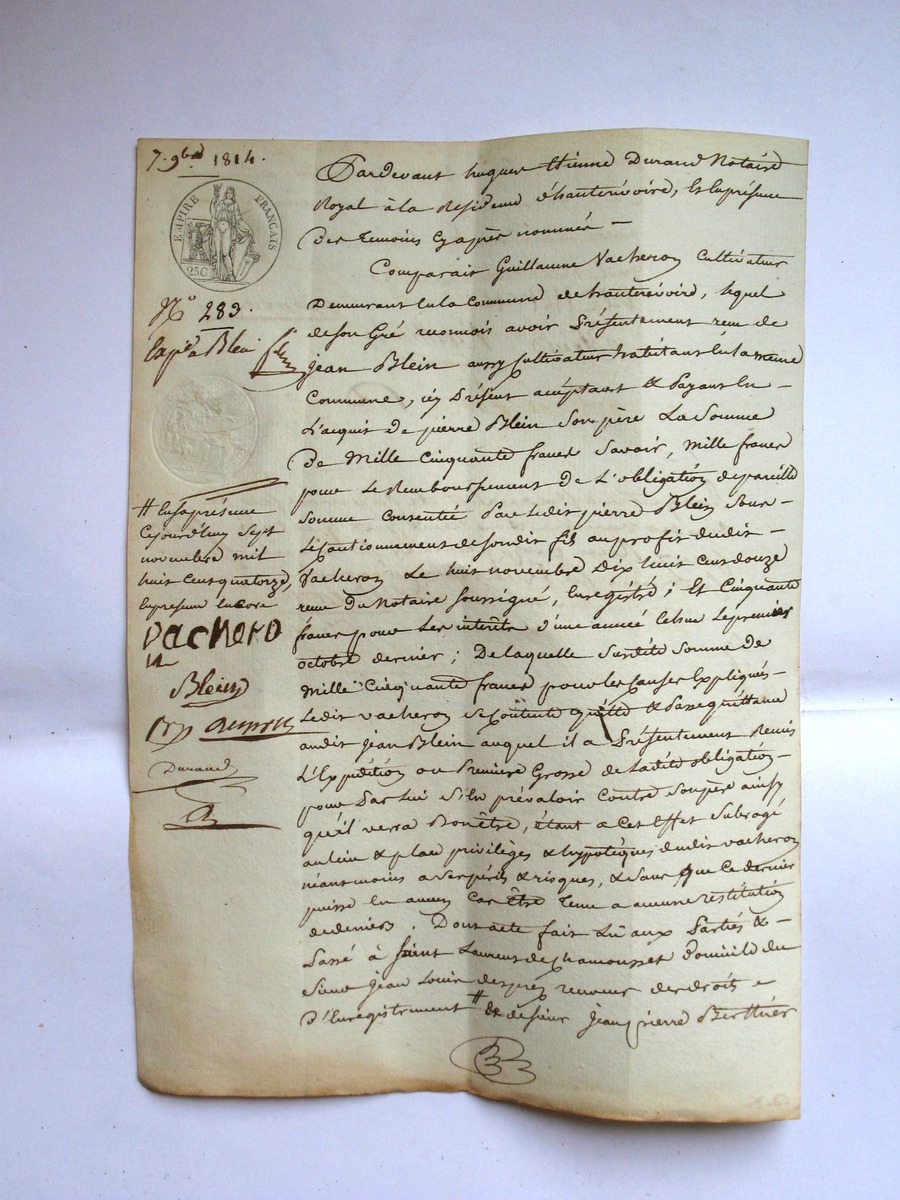 7. 9bre 1814.
EMPIRE FRANÇAIS
25C
N° 283.
Expé à Blein
Pardevant hugues Etienne Durand Notaire
Royal à la Residence d'hauterivoire, et en présence
des temoins cy après nommés –
Comparait Guillaume Vacheron Cultivateur
Demeurant en la Commune de hauterivoire, lequel
de son Gré reconnois avoir Présentement reçu de
jean Blein aussy Cultivateur habitant en la meme
Commune, icy Présent acceptant & Payant en –
L'acquit de pierre Blein son père La Somme
De Mille Cinquante francs Savoir, Mille francs
pour Le Remboursement de L'obligation de pareille
Somme Consentie Par ledit pierre Blein Sous –
Le Cautionnement de sondit fils au profit dudit –
Vacheron Le huit novembre Dix huit Cent douze
reçue du Notaire Soussigné, Enregistré; Et Cinquante
francs pour Les interêts d'une année échue Le premier
octobre dernier; De laquelle Susdite Somme de
Mille Cinquante francs pour les Causes Expliqués –
Ledit vacheron Se Contente quitte & Passe quittance
audit Jean Blein auquel il a Présentement Remis
L'Expédition ou Première Grosse de Ladite obligation –
pour Par Lui S'en prévaloir Contre Son père ainsy
qu'il verra Bon être, étant a Cet Effet Subrogé
au lieu & place privilèges & hypotèques dudit vacheron
néantmoins a Ses périls & risques, & Sans que Ce dernier
puisse En aucun Cas être Tenu a aucune restitution
de deniers. Dont acte fait Lu aux Parties &
Passé à Saint Laurent de Chamousset Domicile du
Sieur Jean Louis desprez receveur des droits
d'Enregistrement # & de Sieur Jean pierre Berthier
# En sa présence
Cejourd'huy Sept
novembre mil
huit Cent quatorze,
En presence encore
vachero
n
Blein
Durand